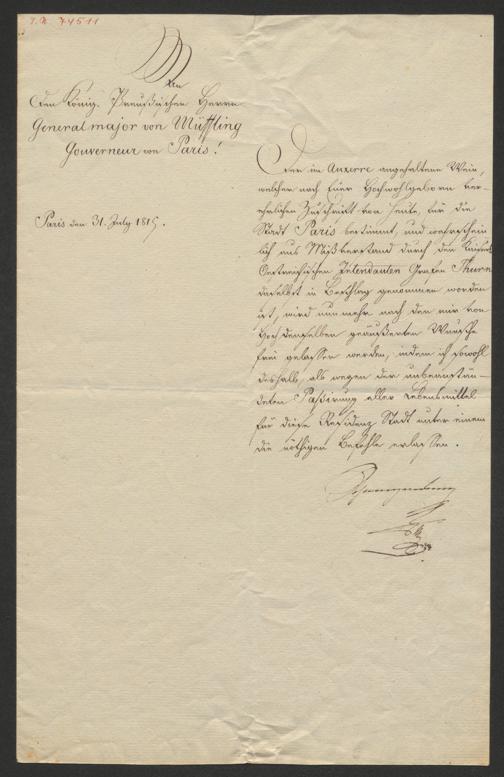 I.N. 74511
An
Den Königl. Preußischen Herrn
Generalmajor von Müffling
Gouverneur von Paris!
Paris den 31. July 1815.
Der im Auxerre angehaltene Wein,
welcher nach Euer Hochwohlgeborn ver-
ehrlichen Zuschrift von heute, für die
Stadt Paris bestimmt, und wahrschein
lich aus Mißverstand durch den Kaiserl.
Oestreichischen Intendanten Grafen Thurn
daselbst in Beschlag genommen worden
ist, wird nunmehr nach dem mir von
Hochdenselben geäußerten Wunsche
frei gelassen werden, indem ich sowohl
deshalb, als wegen der unbeanstän-
deten Paßirung aller Lebensmittel
für diese Residenz Stadt unter einem
die nöthigen Befehle erlassen.
Schwarzenberg